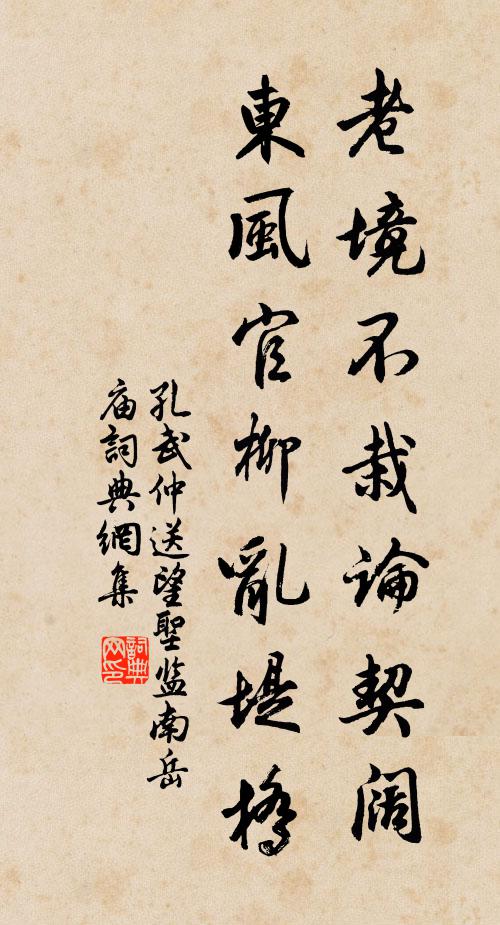 老境不栽論契阔
東風官柳亂堤橋
孔武仲送望聖监南岳
庙詞典網集
詞典网印